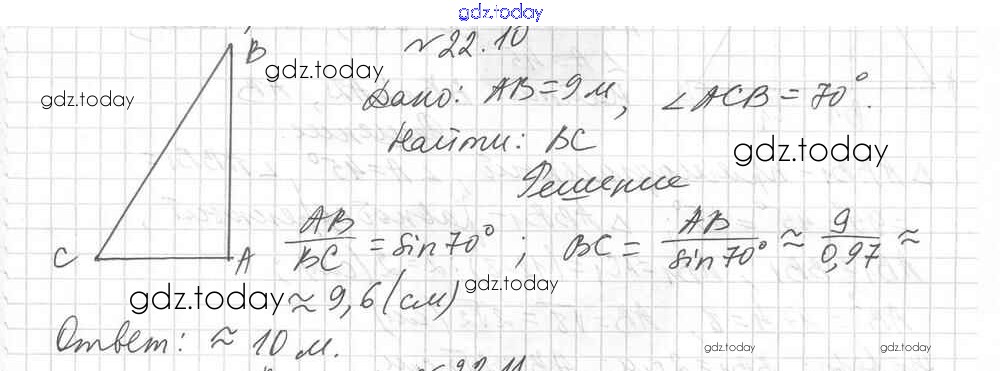 gdz.today
B
№22.10
gdz.today
gdz.today
Дано: AB = 9 м, ∠ACB = 70°.
Найти: BC
gdz.today
Решение
C A AB/BC = sin 70° ; BC = AB/sin 70° ≈ 9/0,97 ≈
gdz.today ≈ 9,6 (см) gdz.today
Ответ: ≈ 10 м.
gdz.today gdz.today
№22.11